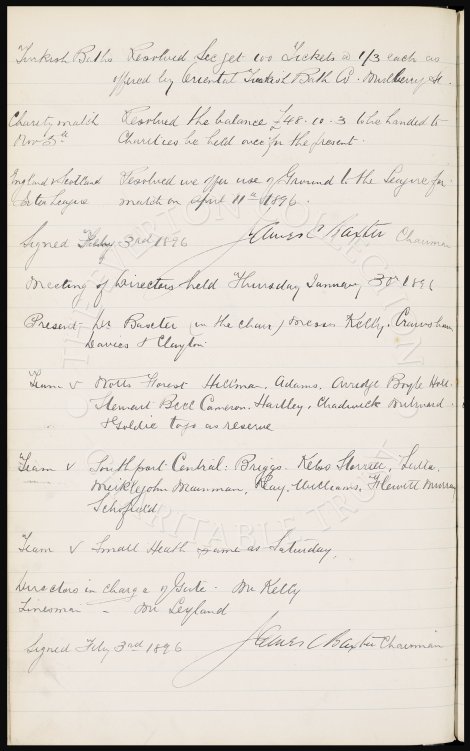 Turkish Baths Resolved Sec get 100 Tickets @ 1/3 each as
offered by Oriental Turkish Bath Co. Mulberry St.
Charity match Resolved the balance £48.10.3 to be handed to
Nov 5th Charities be held over for the present.
England v Scotland Resolved we offer use of Ground to the League for
Inter League match on April 11th 1896.
Signed Feby 3rd 1896 James C Baxter Chairman
Meeting of Directors held Thursday January 30th 1896
Present Dr Baxter (in the chair) Messrs Kelly, Crawshaw
Davies & Clayton
Team v Notts Forest Hillman, Adams, Arridge Boyle Holt
Stewart Bell Cameron, Hartley, Chadwick Milward
& Goldie to go as reserve
Team v Southport Central: Briggs Kelso Storrier,
Meiklejohn Mainman, Williams, Hewitt Murray
Schofield
Team v Small Heath same as Saturday.
Directors in charge of Gate - Mr Kelly
Linesman - Mr Leyland
Signed Feby 3rd 1896 James C Baxter Chairman
THE EVERTON COLLECTION
CHARITABLE TRUST